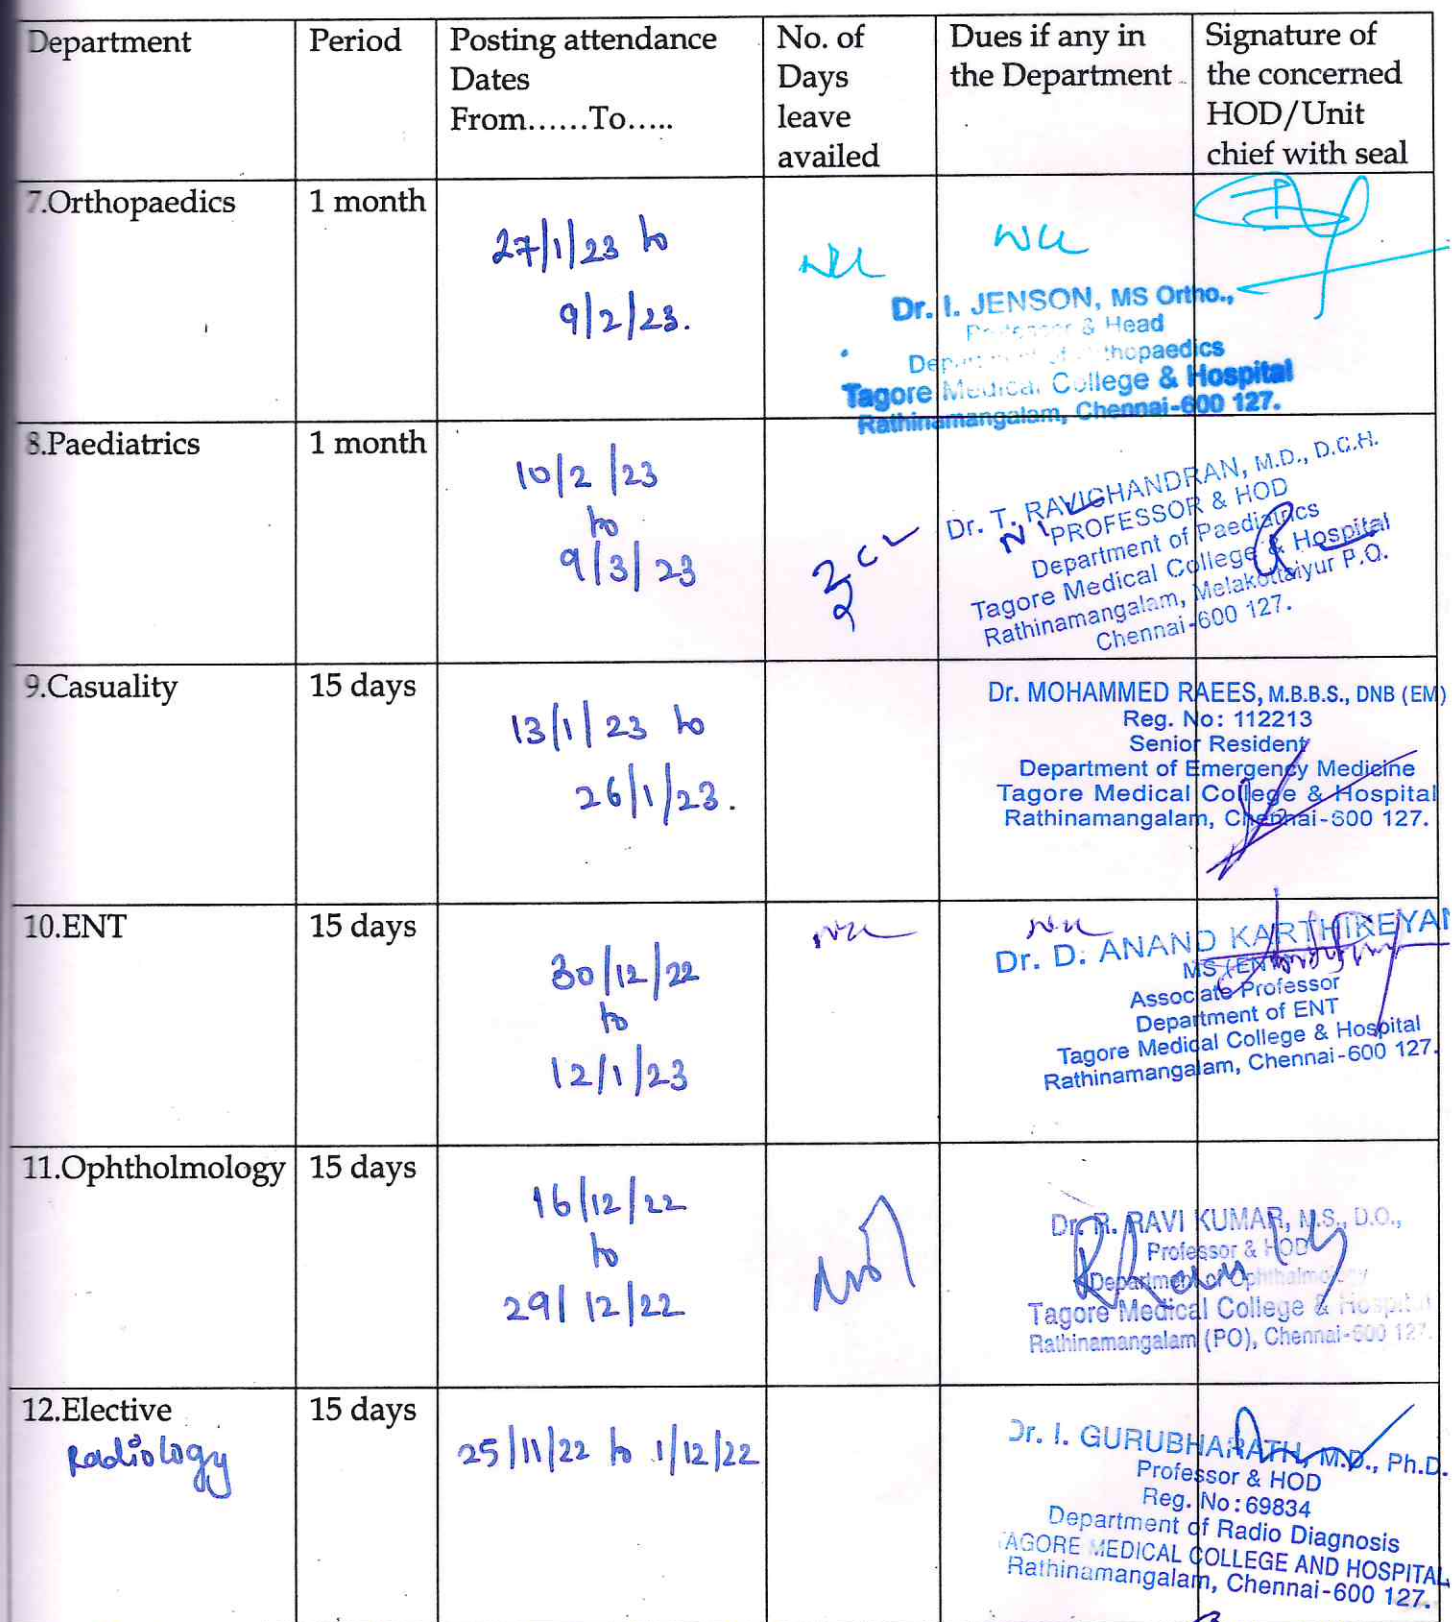 Department
Period
Posting attendance
Dates
From......To.....
No. of
Days
leave
availed
Dues if any in
the Department
Signature of
the concerned
HOD/Unit
chief with seal
7.Orthopaedics
1 month
27/1/23 to
9/2/23.
Nil
Nil
Dr. I. JENSON, MS Ortho.,
Professor & Head
Department of Orthopaedics
Tagore Medical College & Hospital
Rathinamangalam, Chennai-600 127.
8.Paediatrics
1 month
10/2/23
to
9/3/23
Nil
Dr. T. RAVICHANDRAN, M.D., D.C.H.
PROFESSOR & HOD
Department of Paediatrics
Tagore Medical College & Hospital
Rathinamangalam, Melakottaiyur P.O.
Chennai-600 127.
9.Casuality
15 days
13/1/23 to
26/1/23.
Dr. MOHAMMED RAEES, M.B.B.S., DNB (EM)
Reg. No: 112213
Senior Resident
Department of Emergency Medicine
Tagore Medical College & Hospital
Rathinamangalam, Chennai-600 127.
10.ENT
15 days
30/12/22
to
12/1/23
Nil
Nil
Dr. D. ANAND KARTHIKEYAN
MS (ENT)
Associate Professor
Department of ENT
Tagore Medical College & Hospital
Rathinamangalam, Chennai-600 127.
11.Ophtholmology
15 days
16/12/22
to
29/12/22
Dr. R. RAVI KUMAR, M.S., D.O.,
Professor & HOD
Department of Ophthalmology
Tagore Medical College & Hospital
Rathinamangalam (PO), Chennai-600 127.
12.Elective
Radiology
15 days
25/11/22 to 1/12/22
Dr. I. GURUBHARATH, M.D., Ph.D.
Professor & HOD
Reg. No:69834
Department of Radio Diagnosis
TAGORE MEDICAL COLLEGE AND HOSPITAL
Rathinamangalam, Chennai-600 127.